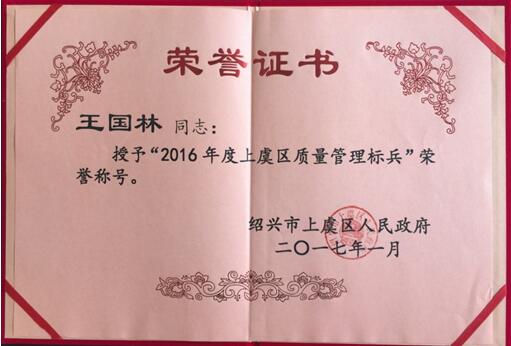 荣誉证书
王国林 同志：
授予“2016年度上虞区质量管理标兵”荣
誉称号。
绍兴市上虞区人民政府
二〇一七年一月